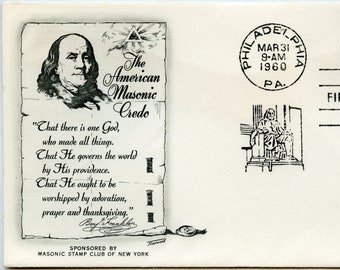 The
American
Masonic
Credo
"That there is one God,
who made all things.
That He governs the world
by His providence.
That He ought to be
worshipped by adoration,
prayer and thanksgiving."
Benj. Franklin
SPONSORED BY
MASONIC STAMP CLUB OF NEW YORK
PHILADELPHIA
MAR 31
9-AM
1960
PA.
FI